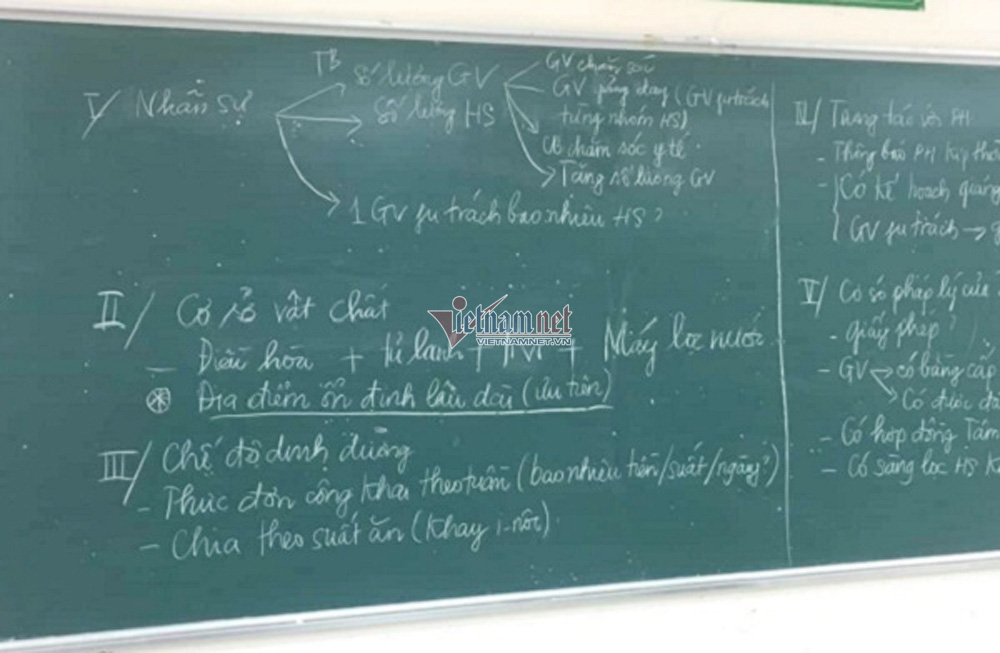 I/ Nhân sự
TB số lượng GV
Số lượng HS
GV chăm sóc
GV giảng dạy (GV fụ trách
từng nhóm HS)
chăm sóc y tế
Tăng số lượng GV
1 GV fụ trách bao nhiêu HS?
II/ Cơ sở vật chất
- Điều hòa + tủ lạnh + TiVi + Máy lọc nước
Địa điểm ổn định lâu dài (ưu tiên)
III/ Chế độ dinh dưỡng
- Thực đơn công khai theo tuần (bao nhiêu tiền/suất/ngày?)
- Chia theo suất ăn (khay i-nốc)
IV/ Tương tác với PH
- Thông báo PH kịp thờ
- Có kế hoạch
GV fụ trách →
V/ Cơ sở pháp lý của
- giấy phép?
- GV có bằng cấp
Có được
- Có hợp đồng
- Có sàng lọc HS
Vietnam.net
VIETNAMNET.VN